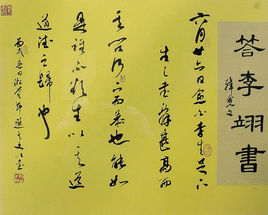 荅李翊書
韓愈文
六月廿六日愈白李生足下
生之書辭甚高而
其問何下而恭也能如
是誰不欲告生以其道
道德之歸也